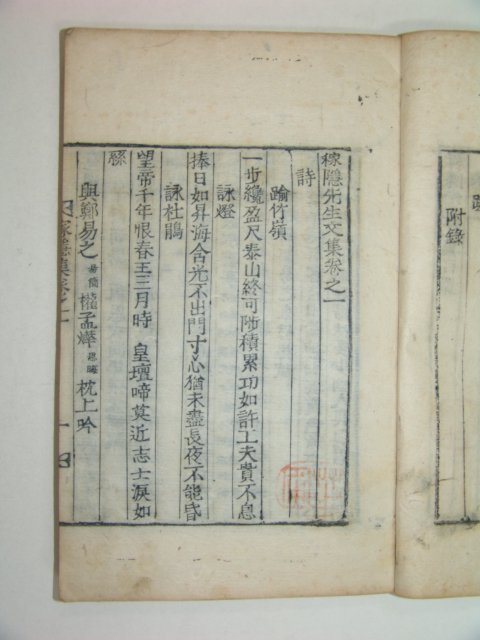 附錄
稼隱先生文集卷之一
詩
踰竹嶺
一步纔盈尺泰山終可陟積累功如許工夫貴不息
詠燈
捧日如昇海含光不出門寸心猶未盡長夜不能昏
詠杜鵑
望帝千年恨春王三月時 皇壇啼莫近志士淚如
絲
與鄭易之 權孟燁 枕上吟